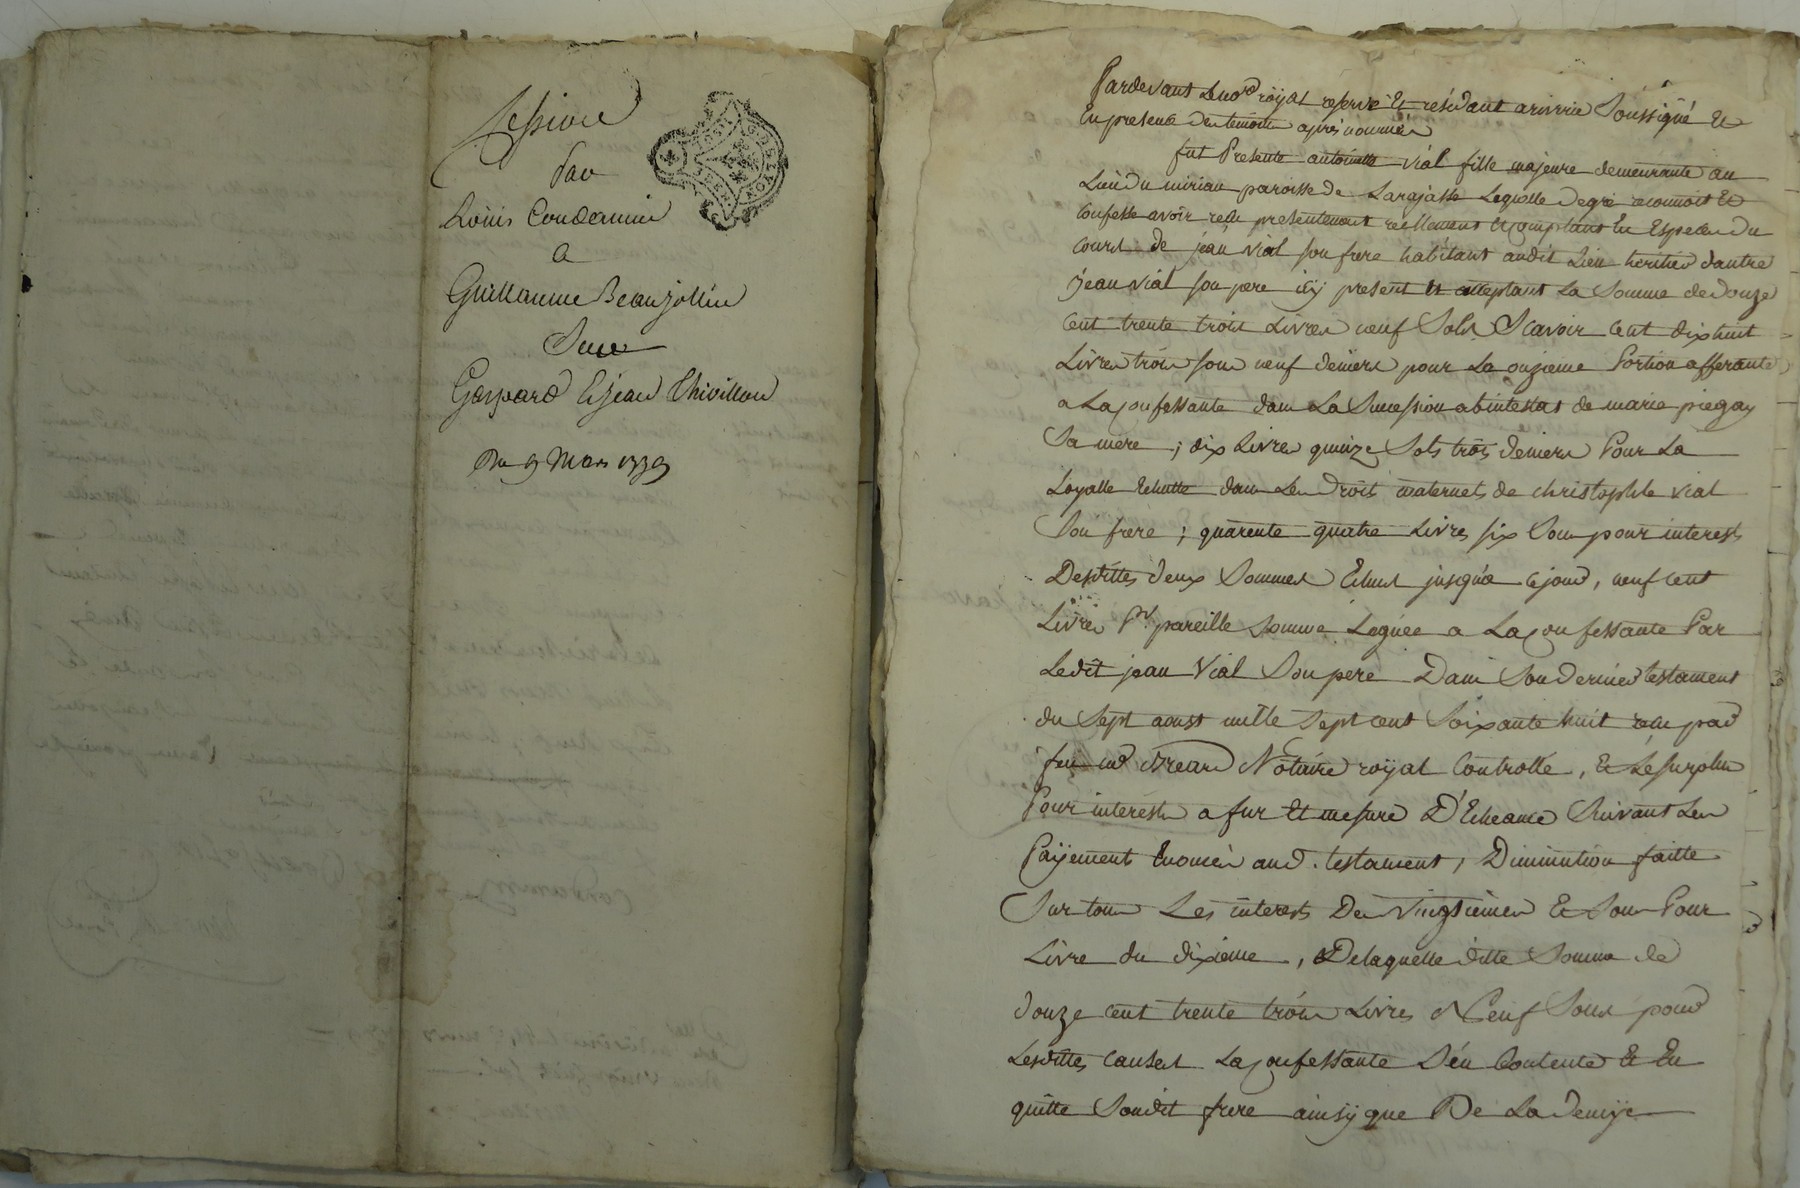 Cession
par
Loüis Condamin
a
Guillaume Beaujollin
Sur
Gaspard Et jean Thivillon
Du 9 Mars 1739
Pardevant Le no.re royal reservé Et résidant a riverie Soussigné Et
En presence des temoins après nommés
fut Presente antoinette vial fille majeure demeurante au
Lieu du mirian paroisse de Larajasse Laquelle de gré reconnoit Et
Confesse avoir reçu presentement réellement Et comptant En Especes du
cours de jean vial son frere habitant audit Lieu heritier d'autre
jean vial son pere icy present Et acceptant La Somme de douze
cent trente trois Livres neuf Sols Scavoir cent dix huit
Livres trois sous neuf deniers pour La onzieme Portion afferante
a La confessante dans La Succession abintestat de marie piegay
Sa mere ; dix Livres quinze Sols trois deniers Pour La
Loyalle Echutte dans Les Droits maternels de christophle vial
Son frere ; quarente quatre Livres six Sous pour interests
Desdittes deux Sommes Echus jusqu'a ce jour, neuf cent
Livres Pr. pareille Somme Leguée a La confessante Par
Ledit jean Vial Son pere Dans Son dernier testament
du Sept aoust mille Sept cent Soixante huit reçu par
feu me Notaire royal Controllé, Et Le surplus
Pour interests a fur Et mesure D'Echeance Suivant Les
Payements Enoncés aud. testament, Diminution faitte
Sur tous Les interests Des Vingtiemes Et Sous Pour
Livre du dixieme, De laquelle ditte Somme de
douze cent trente trois Livres Neuf Sous pour
Lesdittes causes La confessante S'en Contente Et En
quitte Soudit frere ainsy que De La demye